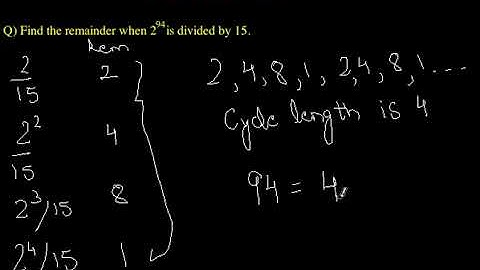 Q) Find the remainder when 2^94 is divided by 15.
Rem
2/15 2
2^2/15 4
2^3/15 8
2^4/15 1
2, 4, 8, 1, 2, 4, 8, 1 ...
Cycle length is 4
94 = 4